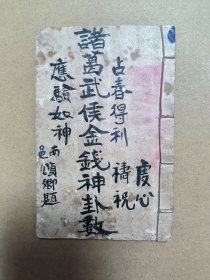 虔心
禱祝
占春得利
諸葛武侯金錢神卦數
應驗如神
南邑頌鄉題